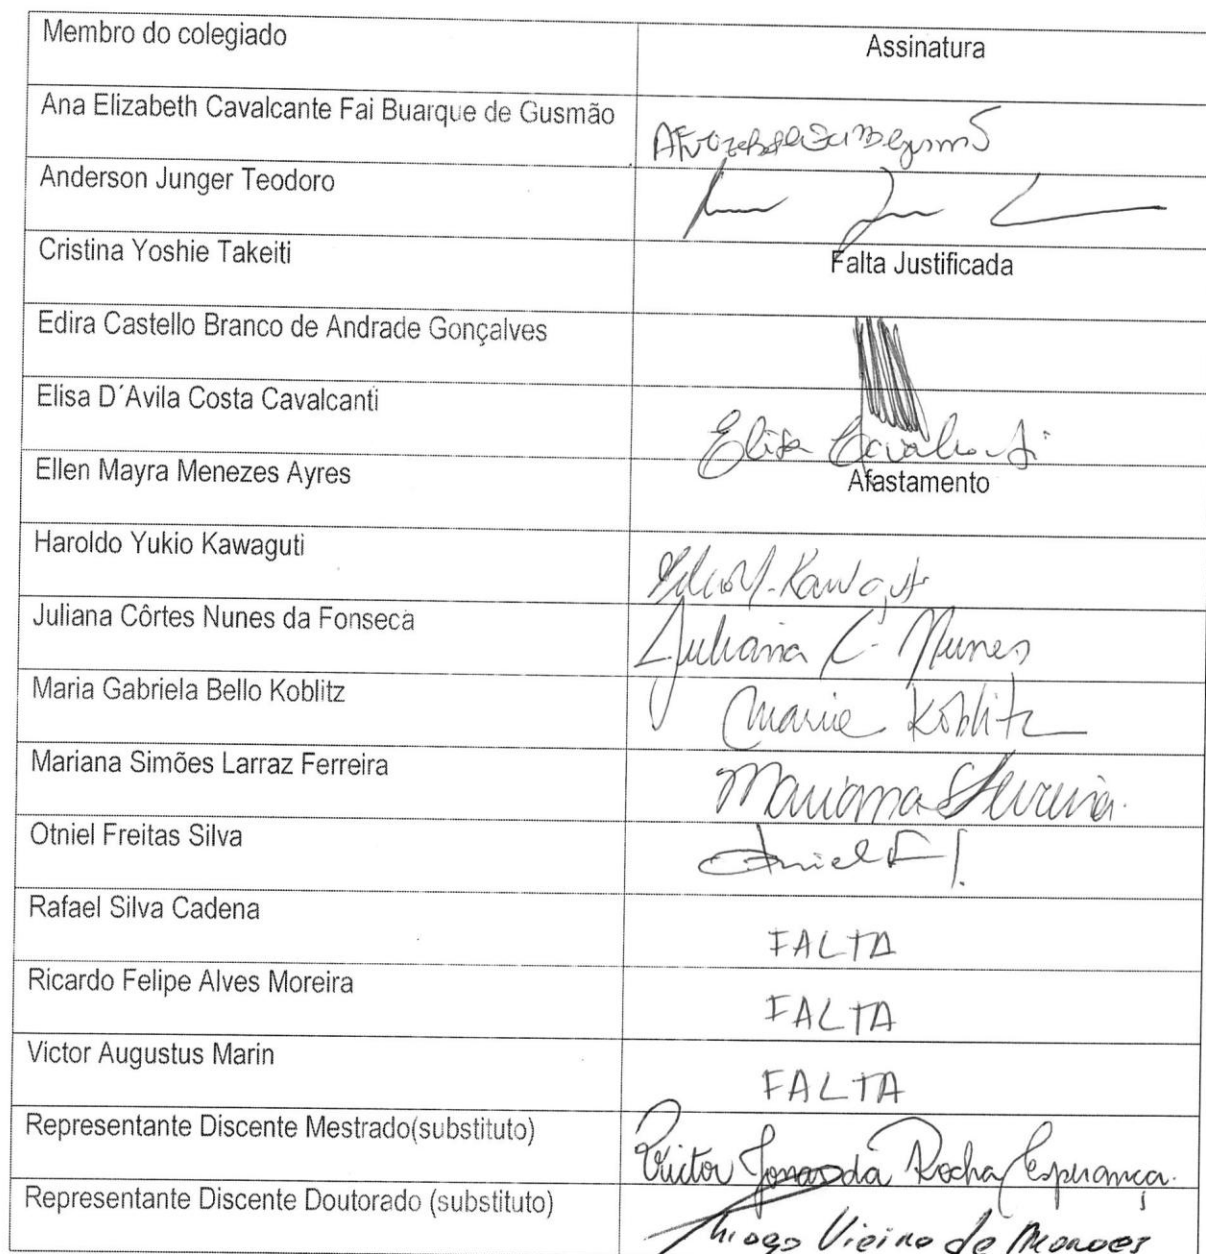 Membro do colegiado Assinatura
Ana Elizabeth Cavalcante Fai Buarque de Gusmão
Anderson Junger Teodoro
Cristina Yoshie Takeiti Falta Justificada
Edira Castello Branco de Andrade Gonçalves
Elisa D´Avila Costa Cavalcanti Elisa Cavalcanti
Ellen Mayra Menezes Ayres Afastamento
Haroldo Yukio Kawaguti
Juliana Côrtes Nunes da Fonseca Juliana C. Nunes
Maria Gabriela Bello Koblitz Maria Koblitz
Mariana Simões Larraz Ferreira Mariana Ferreira.
Otniel Freitas Silva Otniel F S.
Rafael Silva Cadena FALTA
Ricardo Felipe Alves Moreira FALTA
Victor Augustus Marin FALTA
Representante Discente Mestrado(substituto) Victor Jonas da Rocha Esperança.
Representante Discente Doutorado (substituto) Thiago Vieira de Moraes